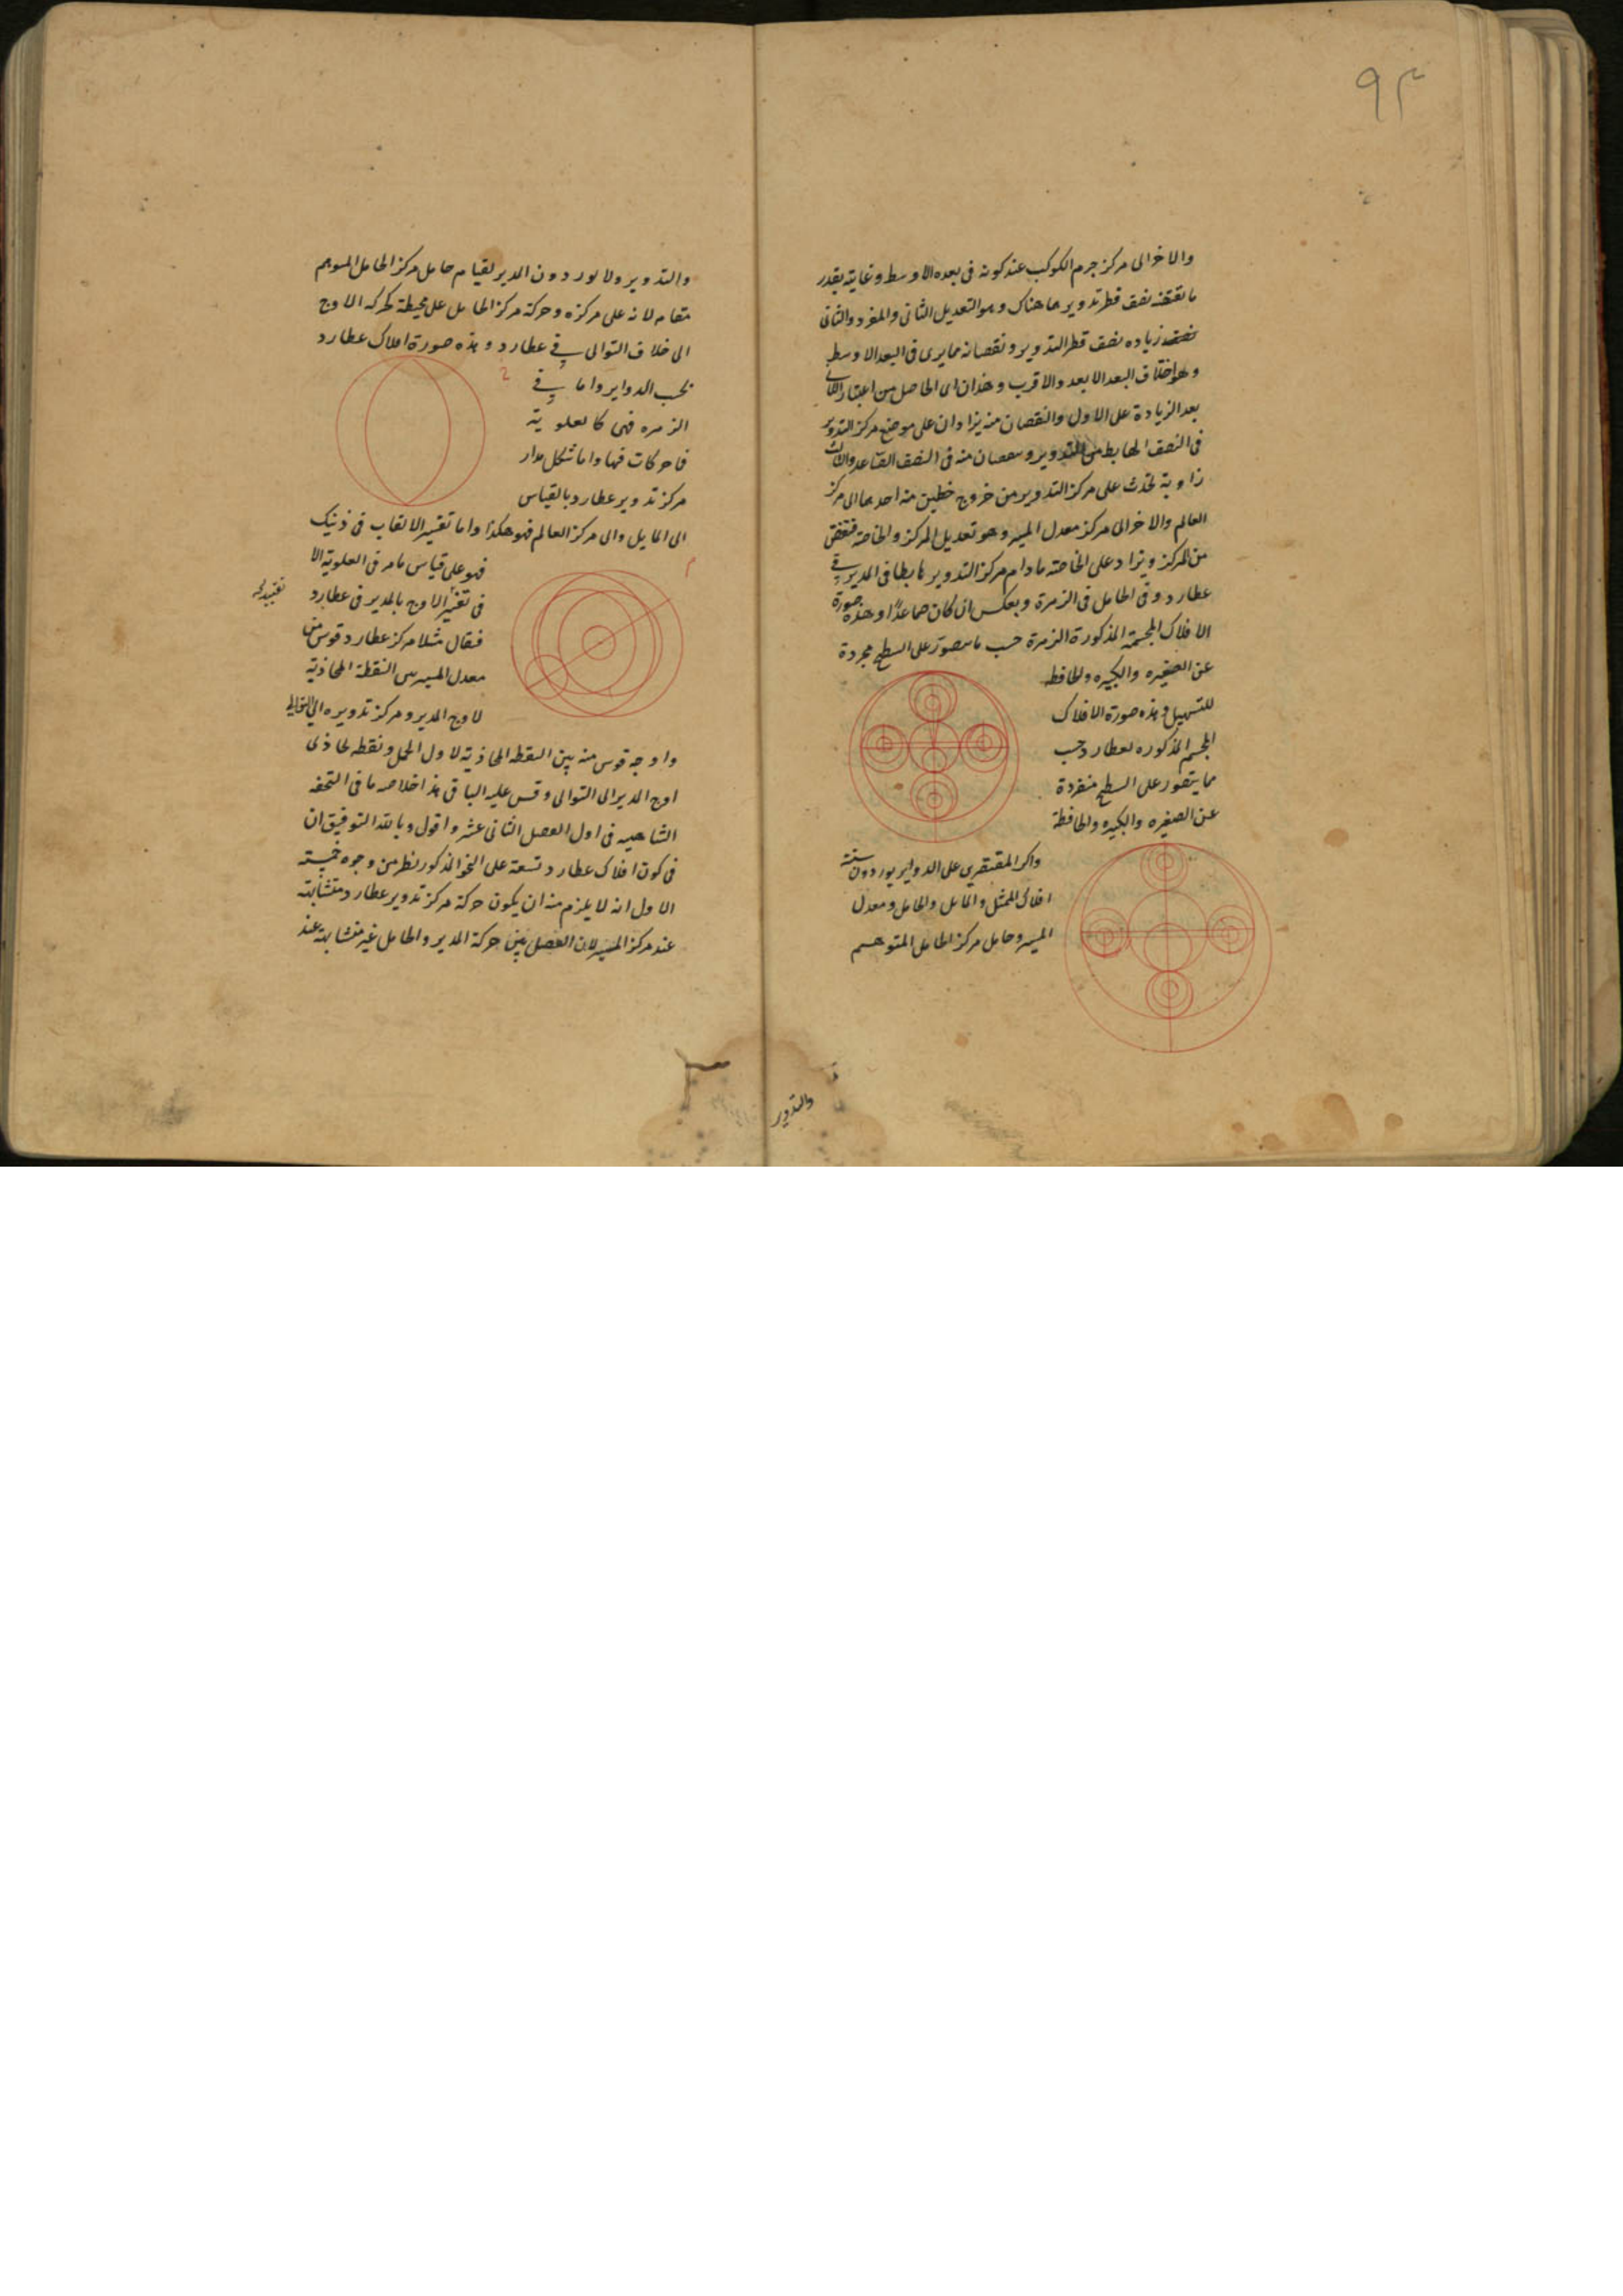 ٩٣
والاخر الى مركز جرم الكوكب عند كونه فى بعده الاوسط وغايته بقدر
ما يقتضيه نصف قطر تدويرها هناك وهو التعديل الثانى والمفرد والثانى
زياده نصف قطر التدوير ونقصانه مما يرى فى البعد الاوسط
وهو اختلاف البعد الابعد والاقرب وهذان اى الحاصل من اعتبار الثانى
بعد الزيادة على الاول والنقصان منه يزادان على موضع مركز التدوير
فى النصف الهابط من التدوير وينقصان منه فى النصف الصاعد والثالث
زاوية تحدث على مركز التدوير من خروج خطين منه احدهما الى مركز
العالم والاخر الى مركز معدل المسير وهو تعديل المركز والخاصة فينقص
من المركز ويزاد على الخاصة ما دام مركز التدوير هابطا فى المدير فى
عطارد وفى الحامل فى الزهرة وبعكس ان كان صاعدًا وهذه صورة
الافلاك المجسمة المذكورة الزهرة حسب ما يتصور على السطح مجردة
عن الصغيره والكبيره والحافظه
للتسهيل وهذه صورة الافلاك
المجسم المذكوره لعطارد حسب
مما يتصور على السطح منفردة
عن الصغيره والكبيره والحافظة
واكر المقتصرين على الدواير يوردون ستة
افلاك الممثل والمايل والحامل ومعدل
المسير وحامل مركز الحامل المتوهم
والتدوير
والتدوير ولا يوردون المدير لقيام حامل مركز الحامل المتوهم
مقامه لانه على مركزه وحركة مركز الحامل على محيطه كحركه الاوج
الى خلاف التوالى فى عطارد وهذه صورة افلاك عطارد
بحسب الدواير واما فى
الزهره فهى كالعلوية
فاحركات فيها واما شكل مدار
مركز تدوير عطارد بالقياس
الى المايل والى مركز العالم فهو هكذا واما تفسير الالقاب فى ذينك
فهو على قياس ما مر فى العلوية الا
فى تغير الاوج بالمدير فى عطارد
فيقال مثلا مركز عطارد قوس من
معدل المسير بين النقطة المحاذية
لاوج المدير ومركز تدويره الى التوالى
واوجه قوس منه بين النقطه المحاذية لاول الحمل ونقطه تحاذى
اوج المدير الى التوالى وقس عليه الباقى هذا خلاصه ما فى التحفه
الشاهيه فى اول الفصل الثانى عشر واقول وبالله التوفيق ان
فى كون افلاك عطارد تسعة على النحو المذكور نظر من وجوه خمسة
الاول انه لا يلزم منه ان يكون حركة مركز تدوير عطارد متشابهة
عند مركز المسير لان الفصل بين حركة المدير والحامل غير متشابهة عند